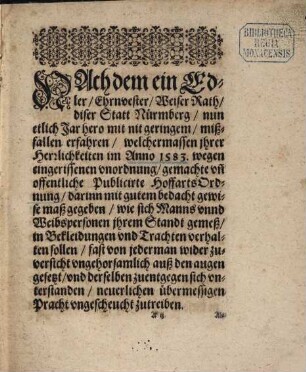 BIBLIOTHECA
REGIA
MONACENSIS
NAch dem ein Ed-
ler / Ehrnvester / Weiser Rath /
diser Statt Nürmberg / nun
etlich Jar hero mit nit geringem / miß-
fallen erfahren / welchermassen jhrer
Herzlichkeiten im Anno 1583. wegen
eingerissenen vnordnung / gemachte vñ
offentliche Publicierte Hoffarts Ord-
nung / darinn mit gutem bedacht gewi-
se maß gegeben / wie sich Manns vnnd
Weibspersonen jhrem Standt gemeß /
in Bekleidungen vnd Trachten verhal-
ten sollen / fast von jederman wider zu-
versicht vngehorsamlich auß den augen
gesetzt / vnd derselben zuentgegen sich vn-
terstanden / neuerlichen übermessigen
Pracht vngescheucht zutreiben.
A ij. Als-